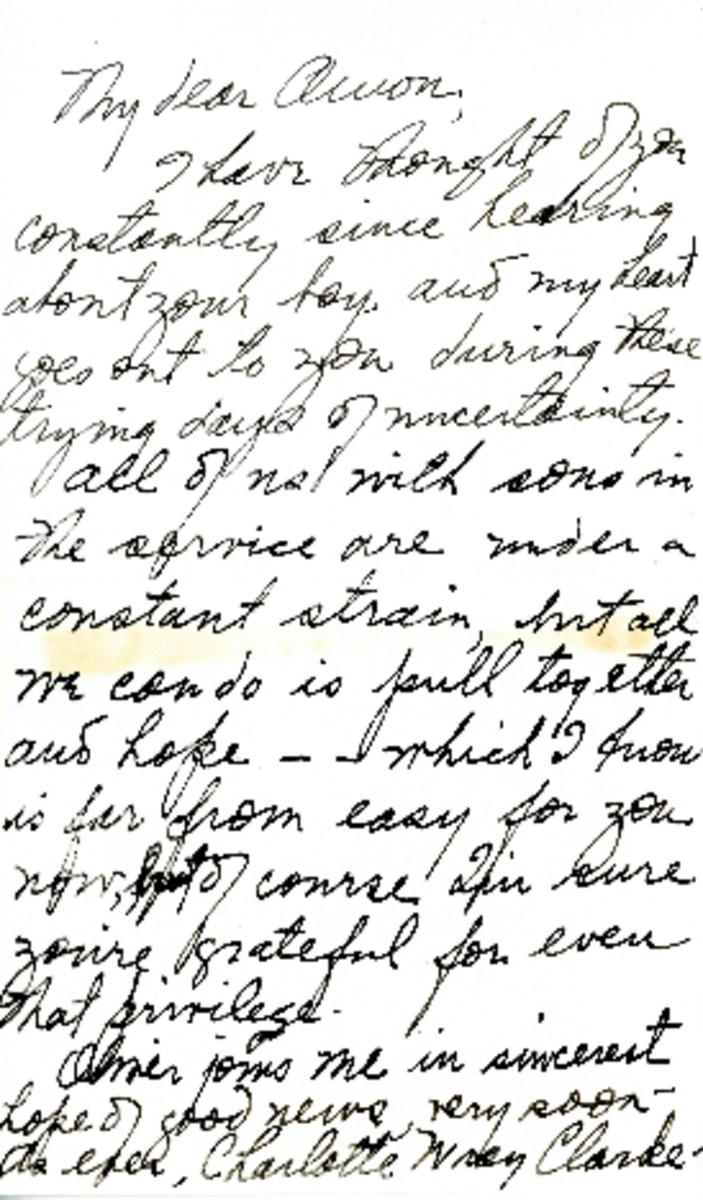 My dear Amon,
I have thought of you
constantly since hearing
about your boy, and my heart
goes out to you during these
trying days of uncertainty.
All of us with sons in
the service are under a
constant strain, but all
we can do is pull together
and hope - - which I know
is far from easy for you
now, but of course I'm sure
you're grateful for even
that privilege.
Olmer joins me in sincerest
hope of good news very soon -
As ever, Charlotte Wray Clarke -